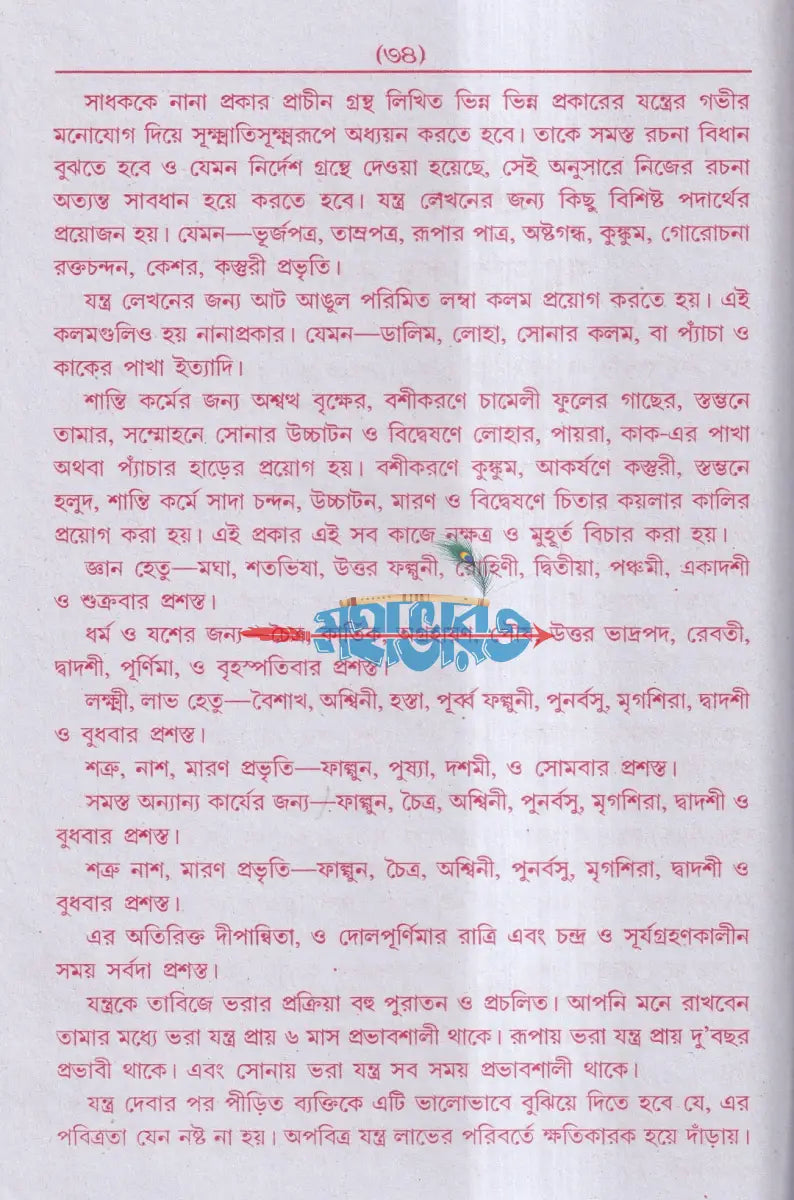 (৩৪)
সাধককে নানা প্রকার প্রাচীন গ্রন্থ লিখিত ভিন্ন ভিন্ন প্রকারের যন্ত্রের গভীর
মনোযোগ দিয়ে সূক্ষ্মাতিসূক্ষ্মরূপে অধ্যয়ন করতে হবে। তাকে সমস্ত রচনা বিধান
বুঝতে হবে ও যেমন নির্দেশ গ্রন্থে দেওয়া হয়েছে, সেই অনুসারে নিজের রচনা
অত্যন্ত সাবধান হয়ে করতে হবে। যন্ত্র লেখনের জন্য কিছু বিশিষ্ট পদার্থের
প্রয়োজন হয়। যেমন—ভূর্জপত্র, তাম্রপত্র, রূপার পাত্র, অষ্টগন্ধ, কুঙ্কুম, গোরোচনা
রক্তচন্দন, কেশর, কস্তুরী প্রভৃতি।
যন্ত্র লেখনের জন্য আট আঙুল পরিমিত লম্বা কলম প্রয়োগ করতে হয়। এই
কলমগুলিও হয় নানাপ্রকার। যেমন—ডালিম, লোহা, সোনার কলম, বা প্যাঁচা ও
কাকের পাখা ইত্যাদি।
শান্তি কর্মের জন্য অশ্বত্থ বৃক্ষের, বশীকরণে চামেলী ফুলের গাছের, স্তম্ভনে
তামার, সম্মোহনে সোনার উচ্চাটন ও বিদ্বেষণে লোহার, পায়রা, কাক-এর পাখা
অথবা প্যাঁচার হাড়ের প্রয়োগ হয়। বশীকরণে কুঙ্কুম, আকর্ষণে কস্তুরী, স্তম্ভনে
হলুদ, শান্তি কর্মে সাদা চন্দন, উচ্চাটন, মারণ ও বিদ্বেষণে চিতার কয়লার কালির
প্রয়োগ করা হয়। এই প্রকার এই সব কাজে নক্ষত্র ও মুহূর্ত বিচার করা হয়।
জ্ঞান হেতু—মঘা, শতভিষা, উত্তর ফল্গুনী, রোহিণী, দ্বিতীয়া, পঞ্চমী, একাদশী
ও শুক্রবার প্রশস্ত।
ধর্ম ও যশের জন্য কার্তিক, উত্তর ভাদ্রপদ, রেবতী,
মহাভারত
দ্বাদশী, পূর্ণিমা, ও বৃহস্পতিবার প্রশস্ত।
লক্ষ্মী, লাভ হেতু—বৈশাখ, অশ্বিনী, হস্তা, পূর্ব্ব ফল্গুনী, পুনর্বসু, মৃগশিরা, দ্বাদশী
ও বুধবার প্রশস্ত।
শত্রু, নাশ, মারণ প্রভৃতি—ফাল্গুন, পুষ্যা, দশমী, ও সোমবার প্রশস্ত।
সমস্ত অন্যান্য কার্যের জন্য—ফাল্গুন, চৈত্র, অশ্বিনী, পুনর্বসু, মৃগশিরা, দ্বাদশী ও
বুধবার প্রশস্ত।
শত্রু নাশ, মারণ প্রভৃতি—ফাল্গুন, চৈত্র, অশ্বিনী, পুনর্বসু, মৃগশিরা, দ্বাদশী ও
বুধবার প্রশস্ত।
এর অতিরিক্ত দীপান্বিতা, ও দোলপূর্ণিমার রাত্রি এবং চন্দ্র ও সূর্যগ্রহণকালীন
সময় সর্বদা প্রশস্ত।
যন্ত্রকে তাবিজে ভরার প্রক্রিয়া বহু পুরাতন ও প্রচলিত। আপনি মনে রাখবেন
তামার মধ্যে ভরা যন্ত্র প্রায় ৬ মাস প্রভাবশালী থাকে। রূপায় ভরা যন্ত্র প্রায় দু’বছর
প্রভাবী থাকে। এবং সোনায় ভরা যন্ত্র সব সময় প্রভাবশালী থাকে।
যন্ত্র দেবার পর পীড়িত ব্যক্তিকে এটি ভালোভাবে বুঝিয়ে দিতে হবে যে, এর
পবিত্রতা যেন নষ্ট না হয়। অপবিত্র যন্ত্র লাভের পরিবর্তে ক্ষতিকারক হয়ে দাঁড়ায়।